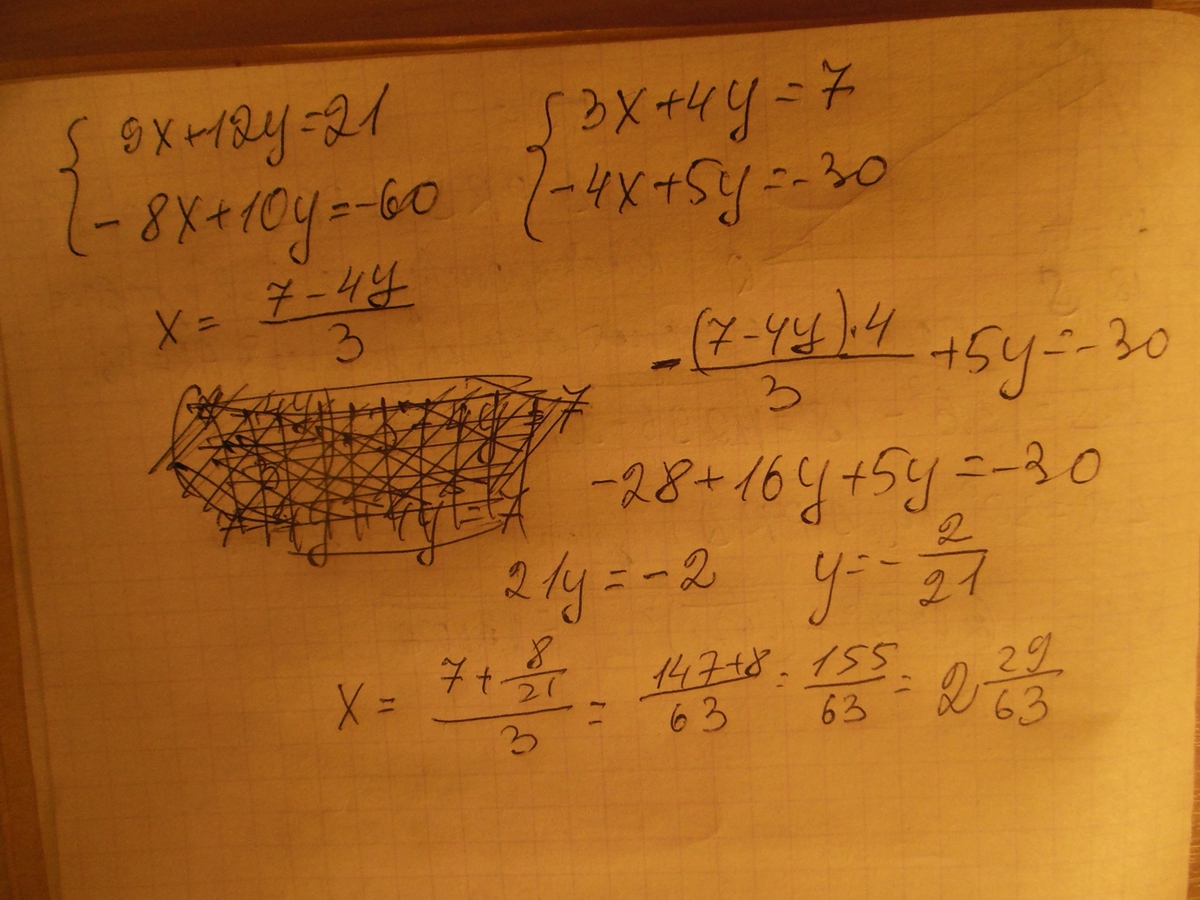 { 9x+12y=21
-8x+10y=-60
{ 3x+4y=7
-4x+5y=-30
x = (7-4y)/3
-((7-4y)·4)/3 +5y=-30
-28+16y+5y=-30
21y=-2 y=-2/21
x = (7+8/21)/3 = (147+8)/63 = 155/63 = 2 29/63